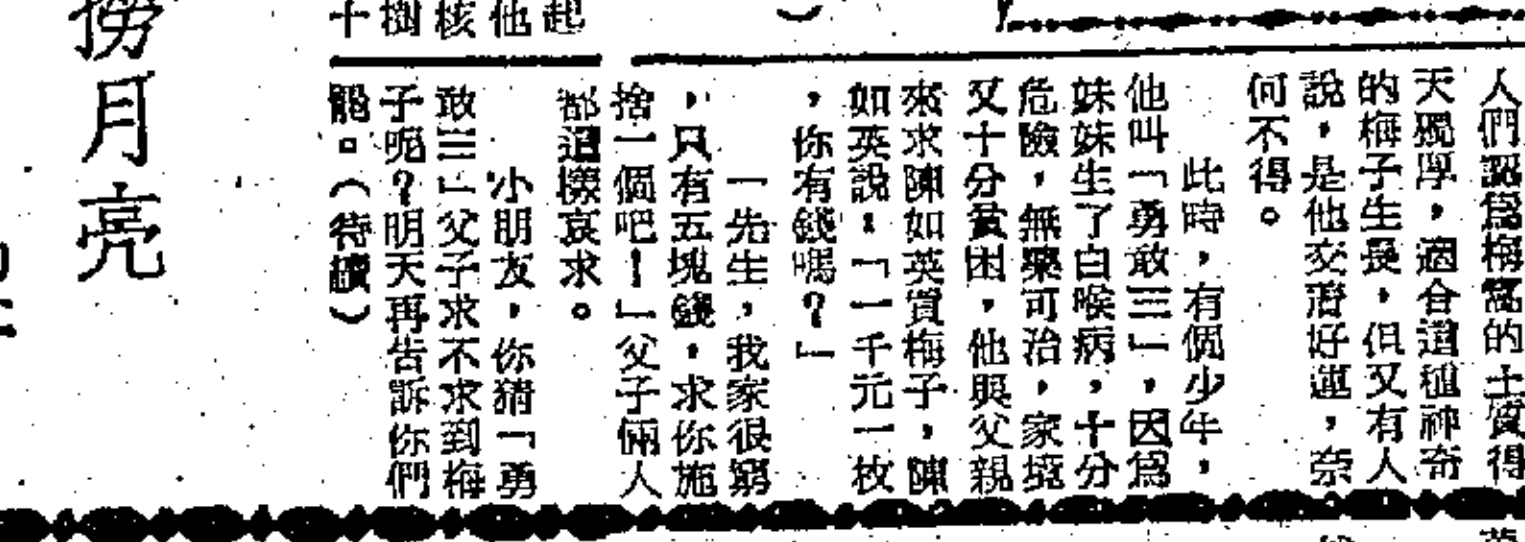 人們認爲梅窩的土質得
天獨厚，適合這種神奇
的梅子生長，但又有人
說，是他交着好運，奈
何不得。
此時，有個少年，
他叫「勇敢三」，因爲
妹妹生了白喉病，十分
危險，無藥可治，家境
又十分貧困，他與父親
來求陳如英買梅子，陳
如英說：「一千元一枚
，你有錢嗎？」
「先生，我家很窮
，只有五塊錢，求你施
捨一個吧！」父子倆人
都這樣哀求。
小朋友，你猜「勇
敢三」父子求不求到梅
子呢？明天再告訴你們
罷。（待續）
起
他
核
樹
十
撈月亮